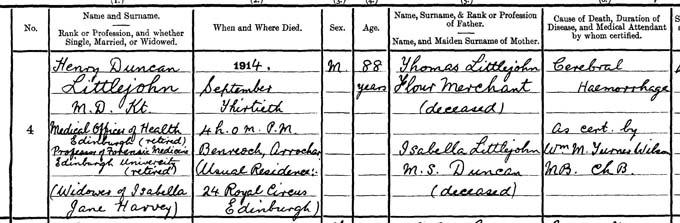 (1.) (2.) (3.) (4.) (5.) (6.)
No.
Name and Surname.
Rank or Profession, and whether
Single, Married, or Widowed.
When and Where Died.
Sex.
Age.
Name, Surname, & Rank or Profession
of Father.
Name, and Maiden Surname of Mother.
Cause of Death, Duration of
Disease, and Medical Attendant
by whom certified.
4
Henry Duncan
Littlejohn
M.D. Kt.
Medical Officer of Health
Edinburgh (retired)
Professor of Forensic Medicine
Edinburgh University
(retired)
(Widower of Isabella
Jane Harvey)
1914.
September
Thirtieth
4h. 0m. P.M.
Benreoch, Arrochar
Usual Residence:-
24 Royal Circus
Edinburgh)
M.
88
years
Thomas Littlejohn
Flour Merchant
(deceased)
Isabella Littlejohn
M.S. Duncan
(deceased)
Cerebral
Haemorrhage
As cert. by
Wm M. Wilson
MB. Ch B.